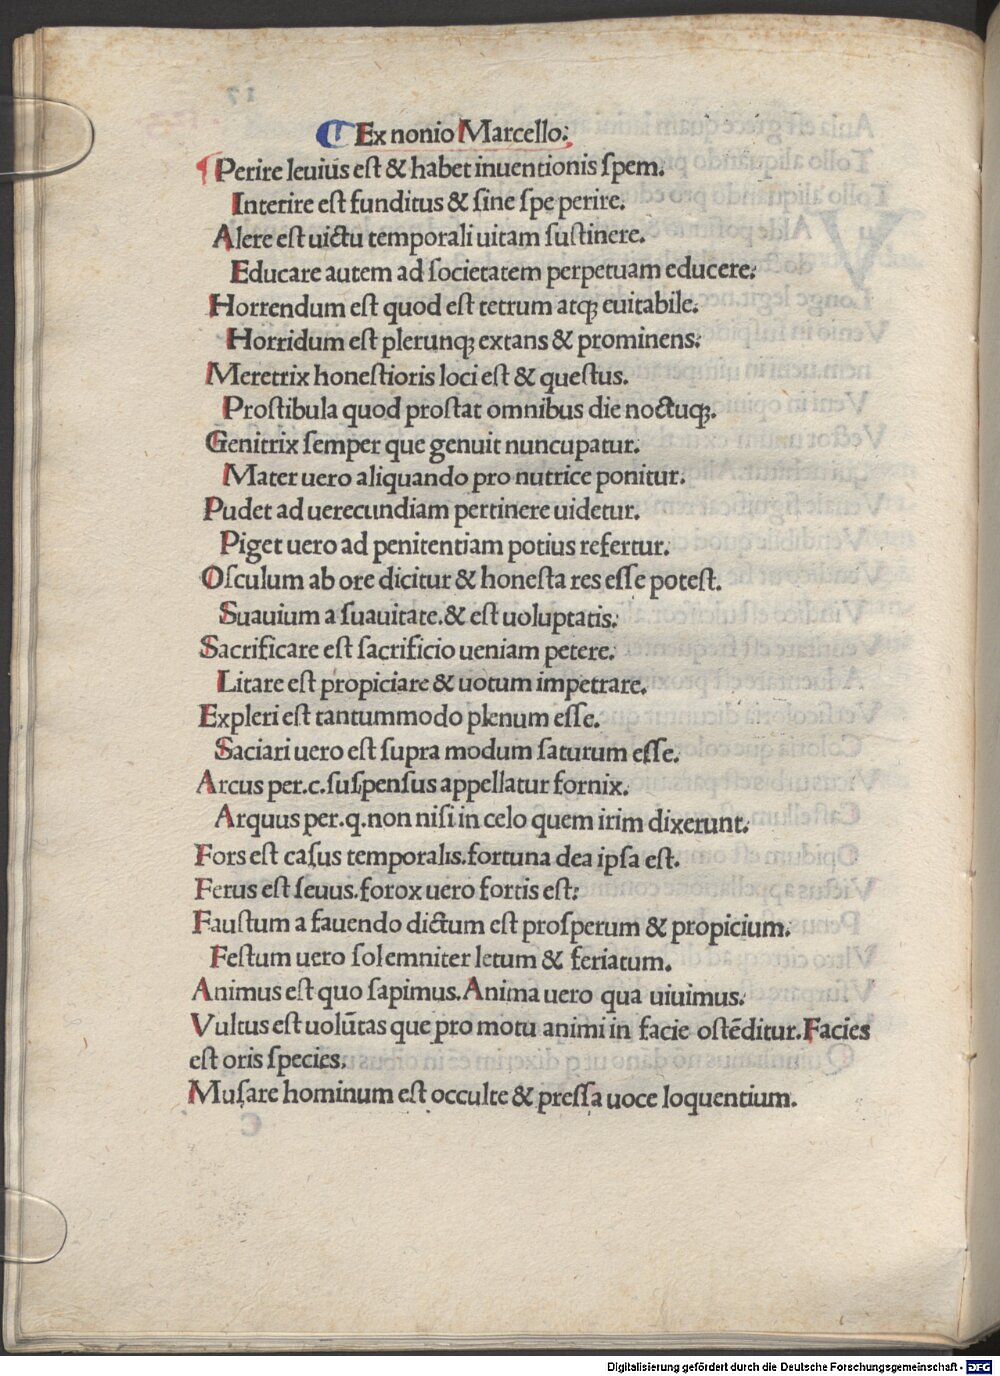 Ex nonio Marcello:
Perire leuius est & habet inuentionis spem.
Interire est funditus & sine spe perire.
Alere est uictu temporali uitam sustinere.
Educare autem ad societatem perpetuam educere:
Horrendum est quod est tetrum atq; euitabile:
Horridum est plerunq; extans & prominens:
Meretrix honestioris loci est & questus.
Prostibula quod prostat omnibus die noctuq;.
Genitrix semper que genuit nuncupatur:
Mater uero aliquando pro nutrice ponitur:
Pudet ad uerecundiam pertinere uidetur.
Piget uero ad penitentiam potius refertur:
Osculum ab ore dicitur & honesta res esse potest.
Suauium a suauitate.& est uoluptatis:
Sacrificare est sacrificio ueniam petere:
Litare est propiciare & uotum impetrare.
Expleri est tantummodo plenum esse.
Saciari uero est supra modum saturum esse.
Arcus per.c.suspensus appellatur fornix.
Arquus per.q.non nisi in celo quem irim dixerunt:
Fors est casus temporalis.fortuna dea ipsa est.
Ferus est seuus.forox uero fortis est:
Faustum a fauendo dictum est prosperum & propicium.
Festum uero solemniter letum & feriatum.
Animus est quo sapimus.Anima uero qua uiuimus:
Vultus est uolūtas que pro motu animi in facie ostēditur.Facies
est oris species.
Musare hominum est occulte & pressa uoce loquentium.
Digitalisierung gefördert durch die Deutsche Forschungsgemeinschaft - DFG